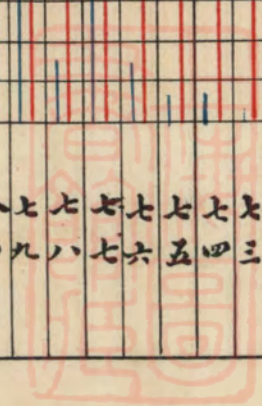 七三
七四
七五
七六
七七
七八
七九